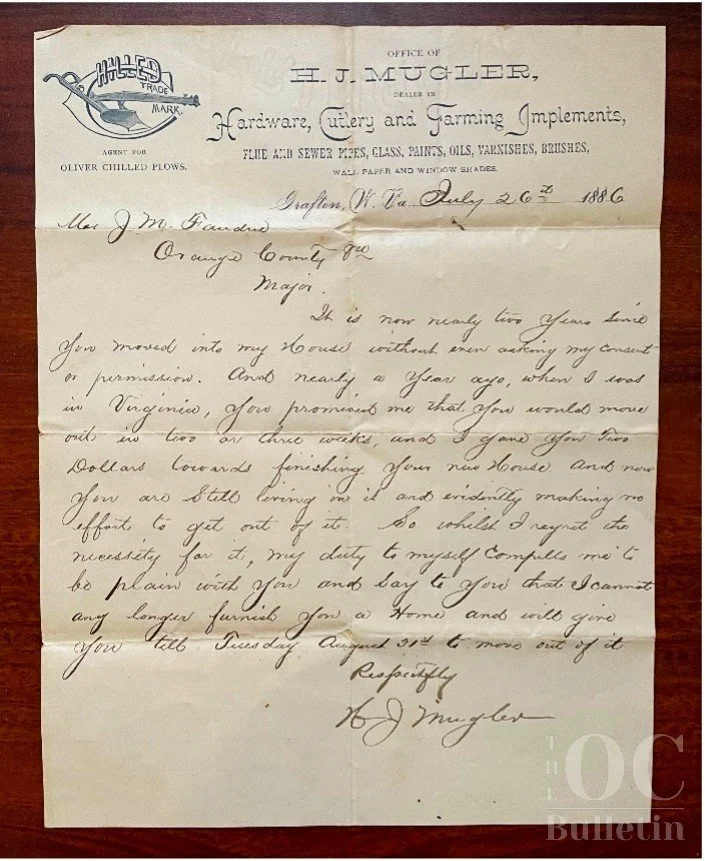 OFFICE OF
H. J. MUGLER,
DEALER IN
Hardware, Cutlery and Farming Implements,
FLUE AND SEWER PIPES, GLASS, PAINTS, OILS, VARNISHES, BRUSHES,
WALL PAPER AND WINDOW SHADES.
CHILLED
TRADE
MARK.
AGENT FOR
OLIVER CHILLED PLOWS.
Grafton, W. Va. July 26th 1886
J. M.
Orange County Va
Major.
It is now nearly two Years since
You moved into my House without even asking my consent
or permission. And nearly a Year ago, when I was
in Virginia, You promised me that You would move
out in two or three weeks, and I gave You Two
Dollars towards finishing Your new House And now
You are Still living in it and evidently making no
effort to get out of it. So whilst I regret the
necessity for it, my duty to myself Compells me to
be plain with You and Say to You that I cannot
any longer furnish You a Home and will give
You till Tuesday August 31st to move out of it
Respectfly
H J Mugler
THE OC
Bulletin